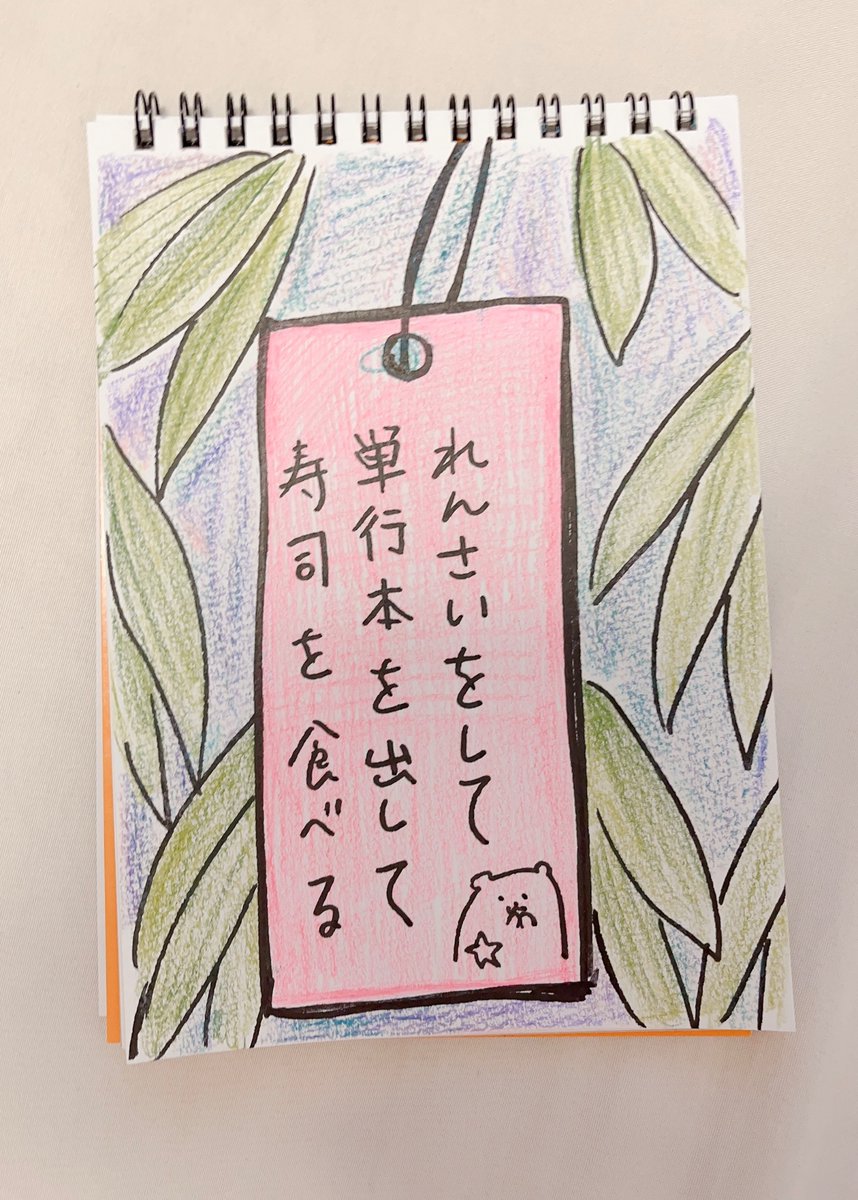 れんさいをして
単行本を出して
寿司を食べる